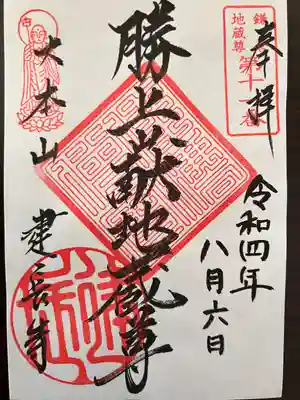 奉拝
鎌
地蔵尊
第十一番
令和四年
八月六日
勝上献地蔵尊
大本山
建長寺